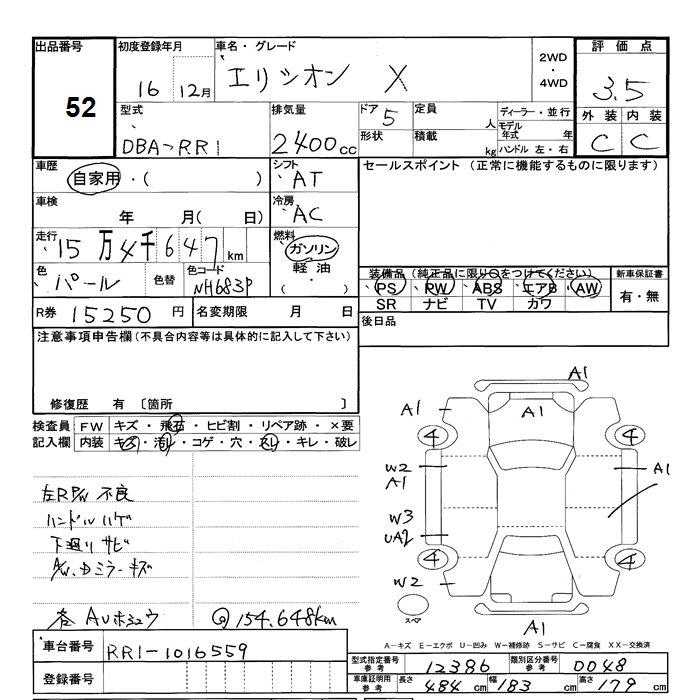 出品番号 52
初度登録年月 16 12月
車名・グレード エリシオン X
2WD・4WD
評価点 3.5
外装 内装
C C
型式 DBA-RR1
排気量 2400cc
ドア 5
形状
定員 人
積載 kg
ディーラー・並行
モデル年式 年
ハンドル 左・右
車歴 自家用・( )
シフト AT
車検 年 月( 日)
冷房 AC
走行 15万4千647km
燃料 ガソリン 軽油・( )
色 パール 色替 色コード NH683P
セールスポイント (正常に機能するものに限ります)
装備品(純正品に限り○をつけてください)
PS PW ABS エアB AW
SR ナビ TV カワ
新車保証書 有・無
後日品
R券 15250円 名変期限 月 日
注意事項申告欄(不具合内容等は具体的に記入して下さい)
修復歴 有 〔箇所 〕
検査員 FW キズ・飛石・ヒビ割・リペア跡・×要
記入欄 内装 キズ・汚レ・コゲ・穴・スレ・キレ・破レ
左RP/W 不良
ハンドルハゲ
下廻りサビ
A/W、Dミラーキズ
AVホシュウ @154.648km
A1
A1 A1
4 4
W2 A1
A1
W3
UA2
4 4
W2
スペア
A1
A-キズ E-エクボ U-凹み W-補修跡 S-サビ C-腐食 XX-交換済
車台番号 RR1-1016559
登録番号
型式指定番号 参考 12386 類別区分番号 参考 0048
車庫証明用 参考 長さ 484cm 幅 183cm 高さ 179cm